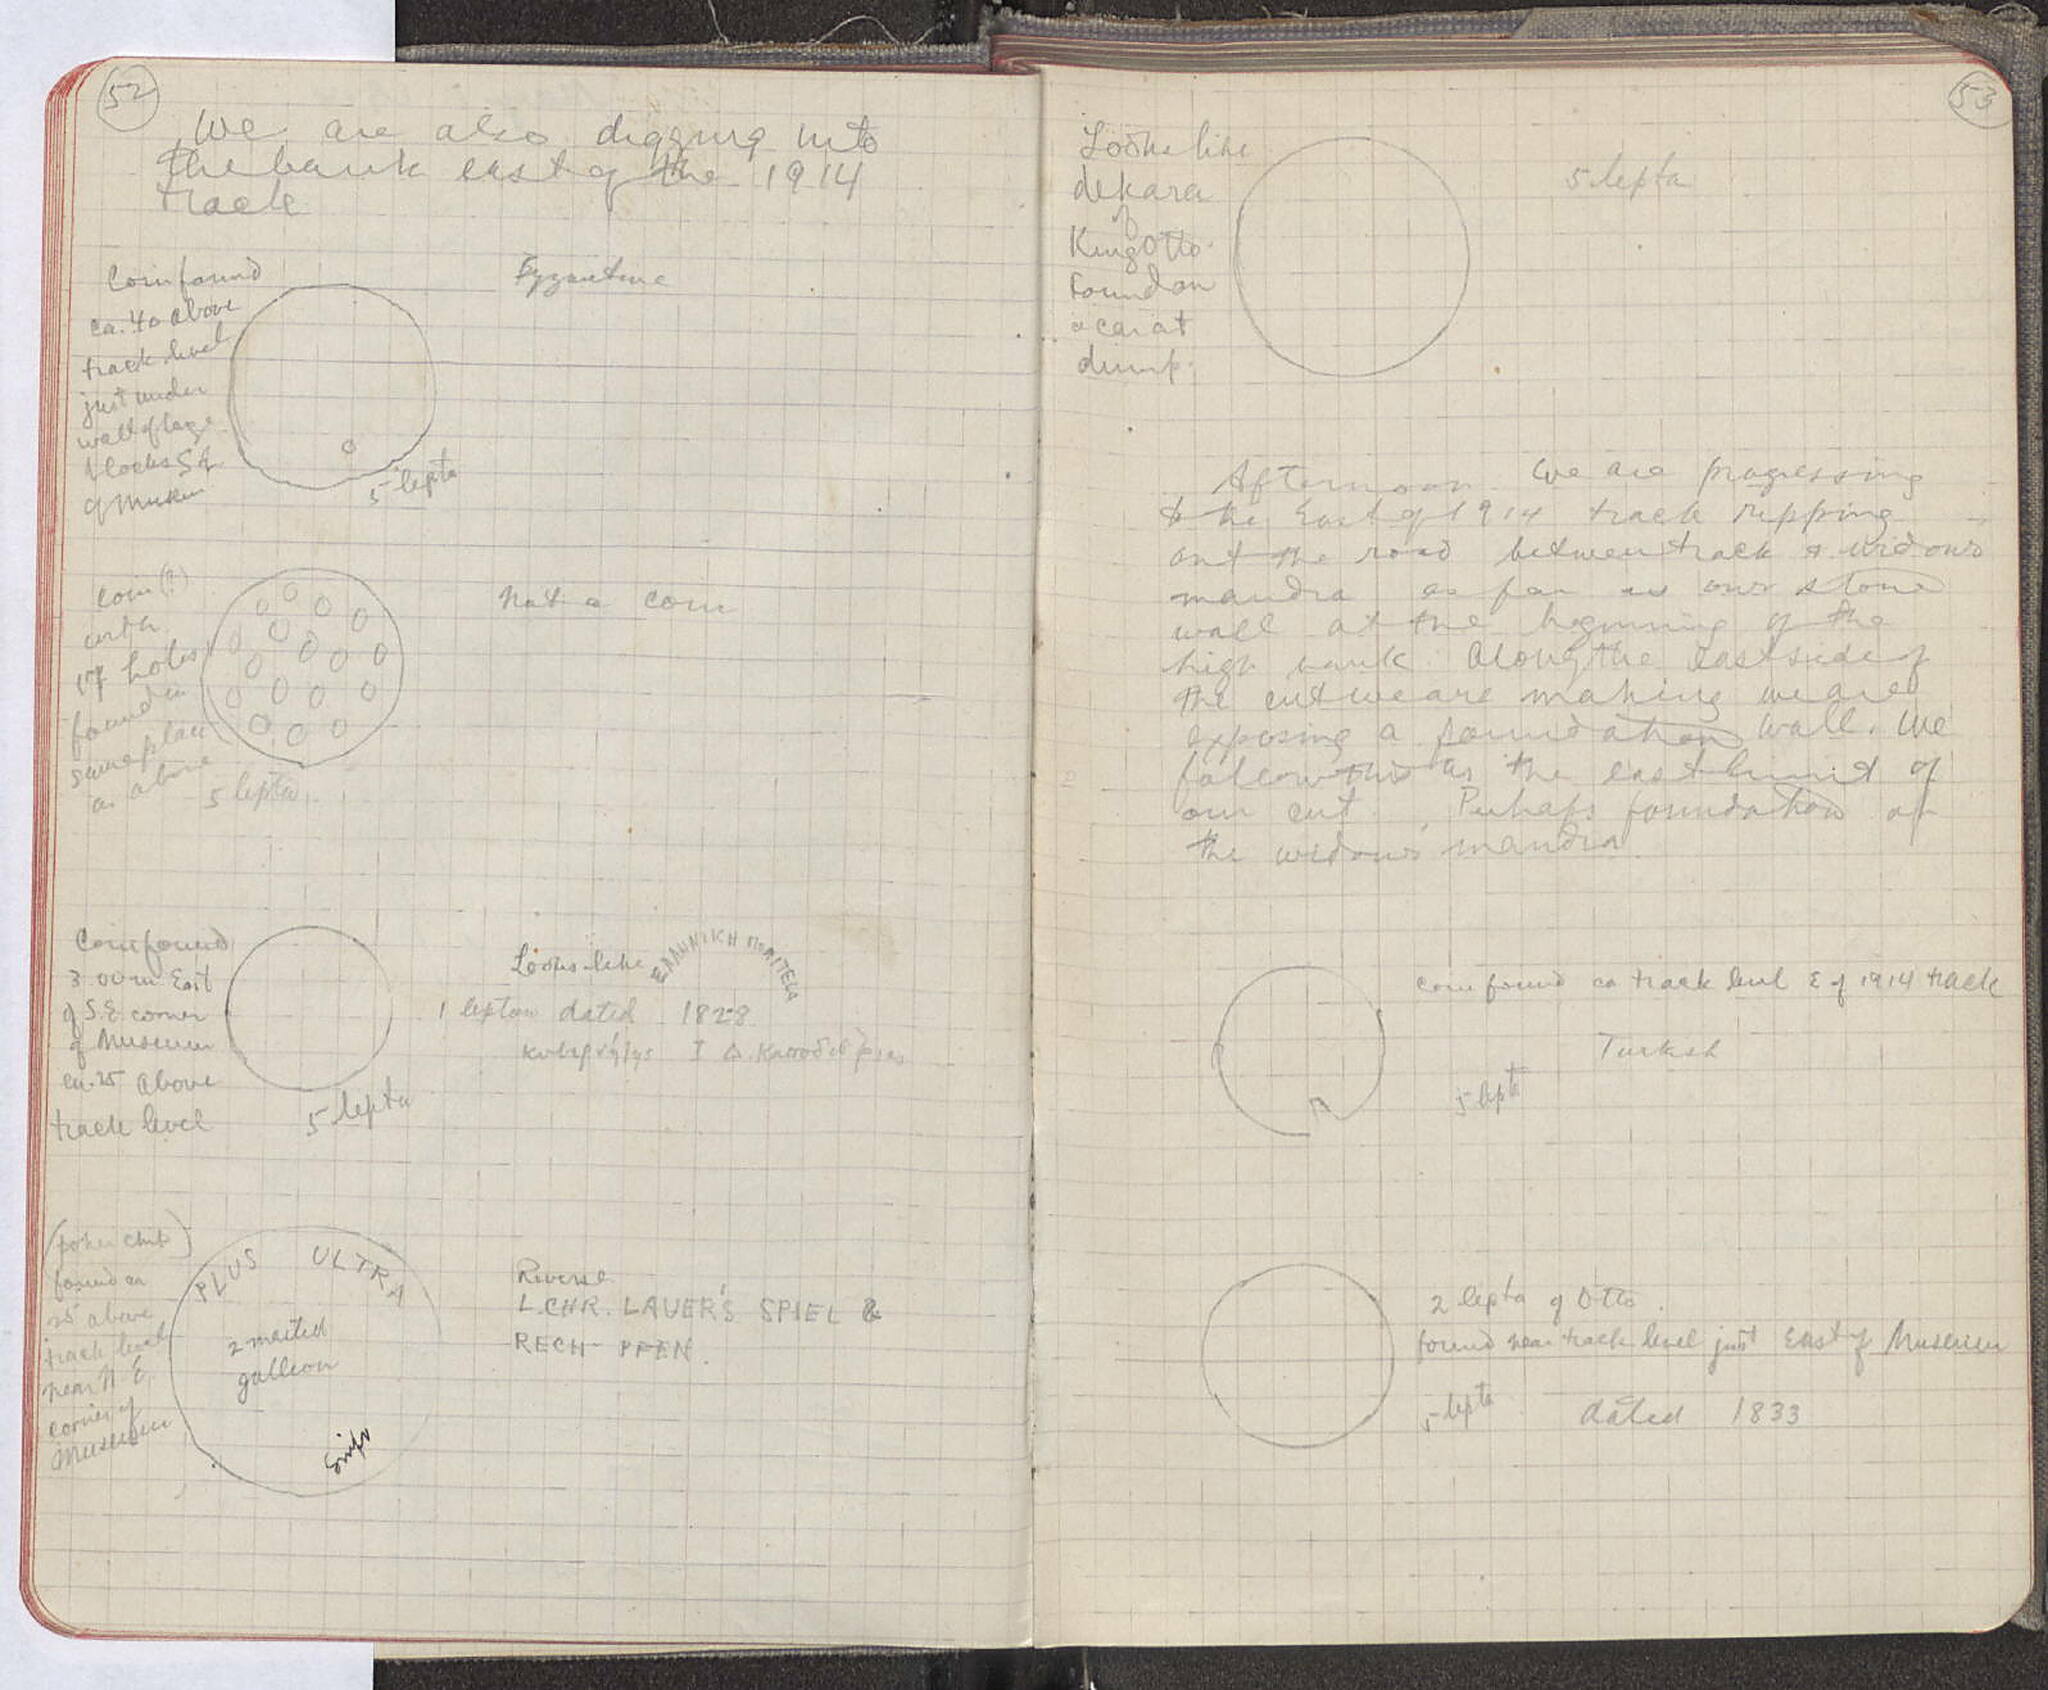 52
We are also digging into
the bank east of the 1914
track
Coin found
ca. 40 above
track level
just under
wall of large
blocks S of
of Museum
5 lepta
Byzantine
coin (?)
with
17 holes
found in
same place
as above
5 lepta
Not a coin
Coin found
3.00 m East
of S.E. corner
of Museum
ca. 25 above
track level
5 lepta
Looks like ΕΛΛΗΝΙΚΗ ΠΟΛΙΤΕΙΑ
1 lepton dated 1828
Ι Α.
(poker chip)
found ca
25 above
track level
near N E
corner of
Museum
PLUS ULTRA
2 masted
galleon
Reverse
L. CHR. LAUER'S SPIEL &
RECH- PFEN.
53
Looks like
dekara
of
King Otto
found on
a car at
dump.
5 lepta
Afternoon We are progressing
to the East of 1914 track ripping
out the road between track & widow's
mandra as far as our stone
wall at the beginning of the
high bank. Along the east side of
the cut we are making we are
exposing a foundation wall. We
follow this as the east limit of
our cut. Perhaps foundation of
the widow's mandra
coin found ca track level E of 1914 track
Turkish
5 lepta
2 lepta of Otto.
found near track level just East of Museum
5 lepta dated 1833